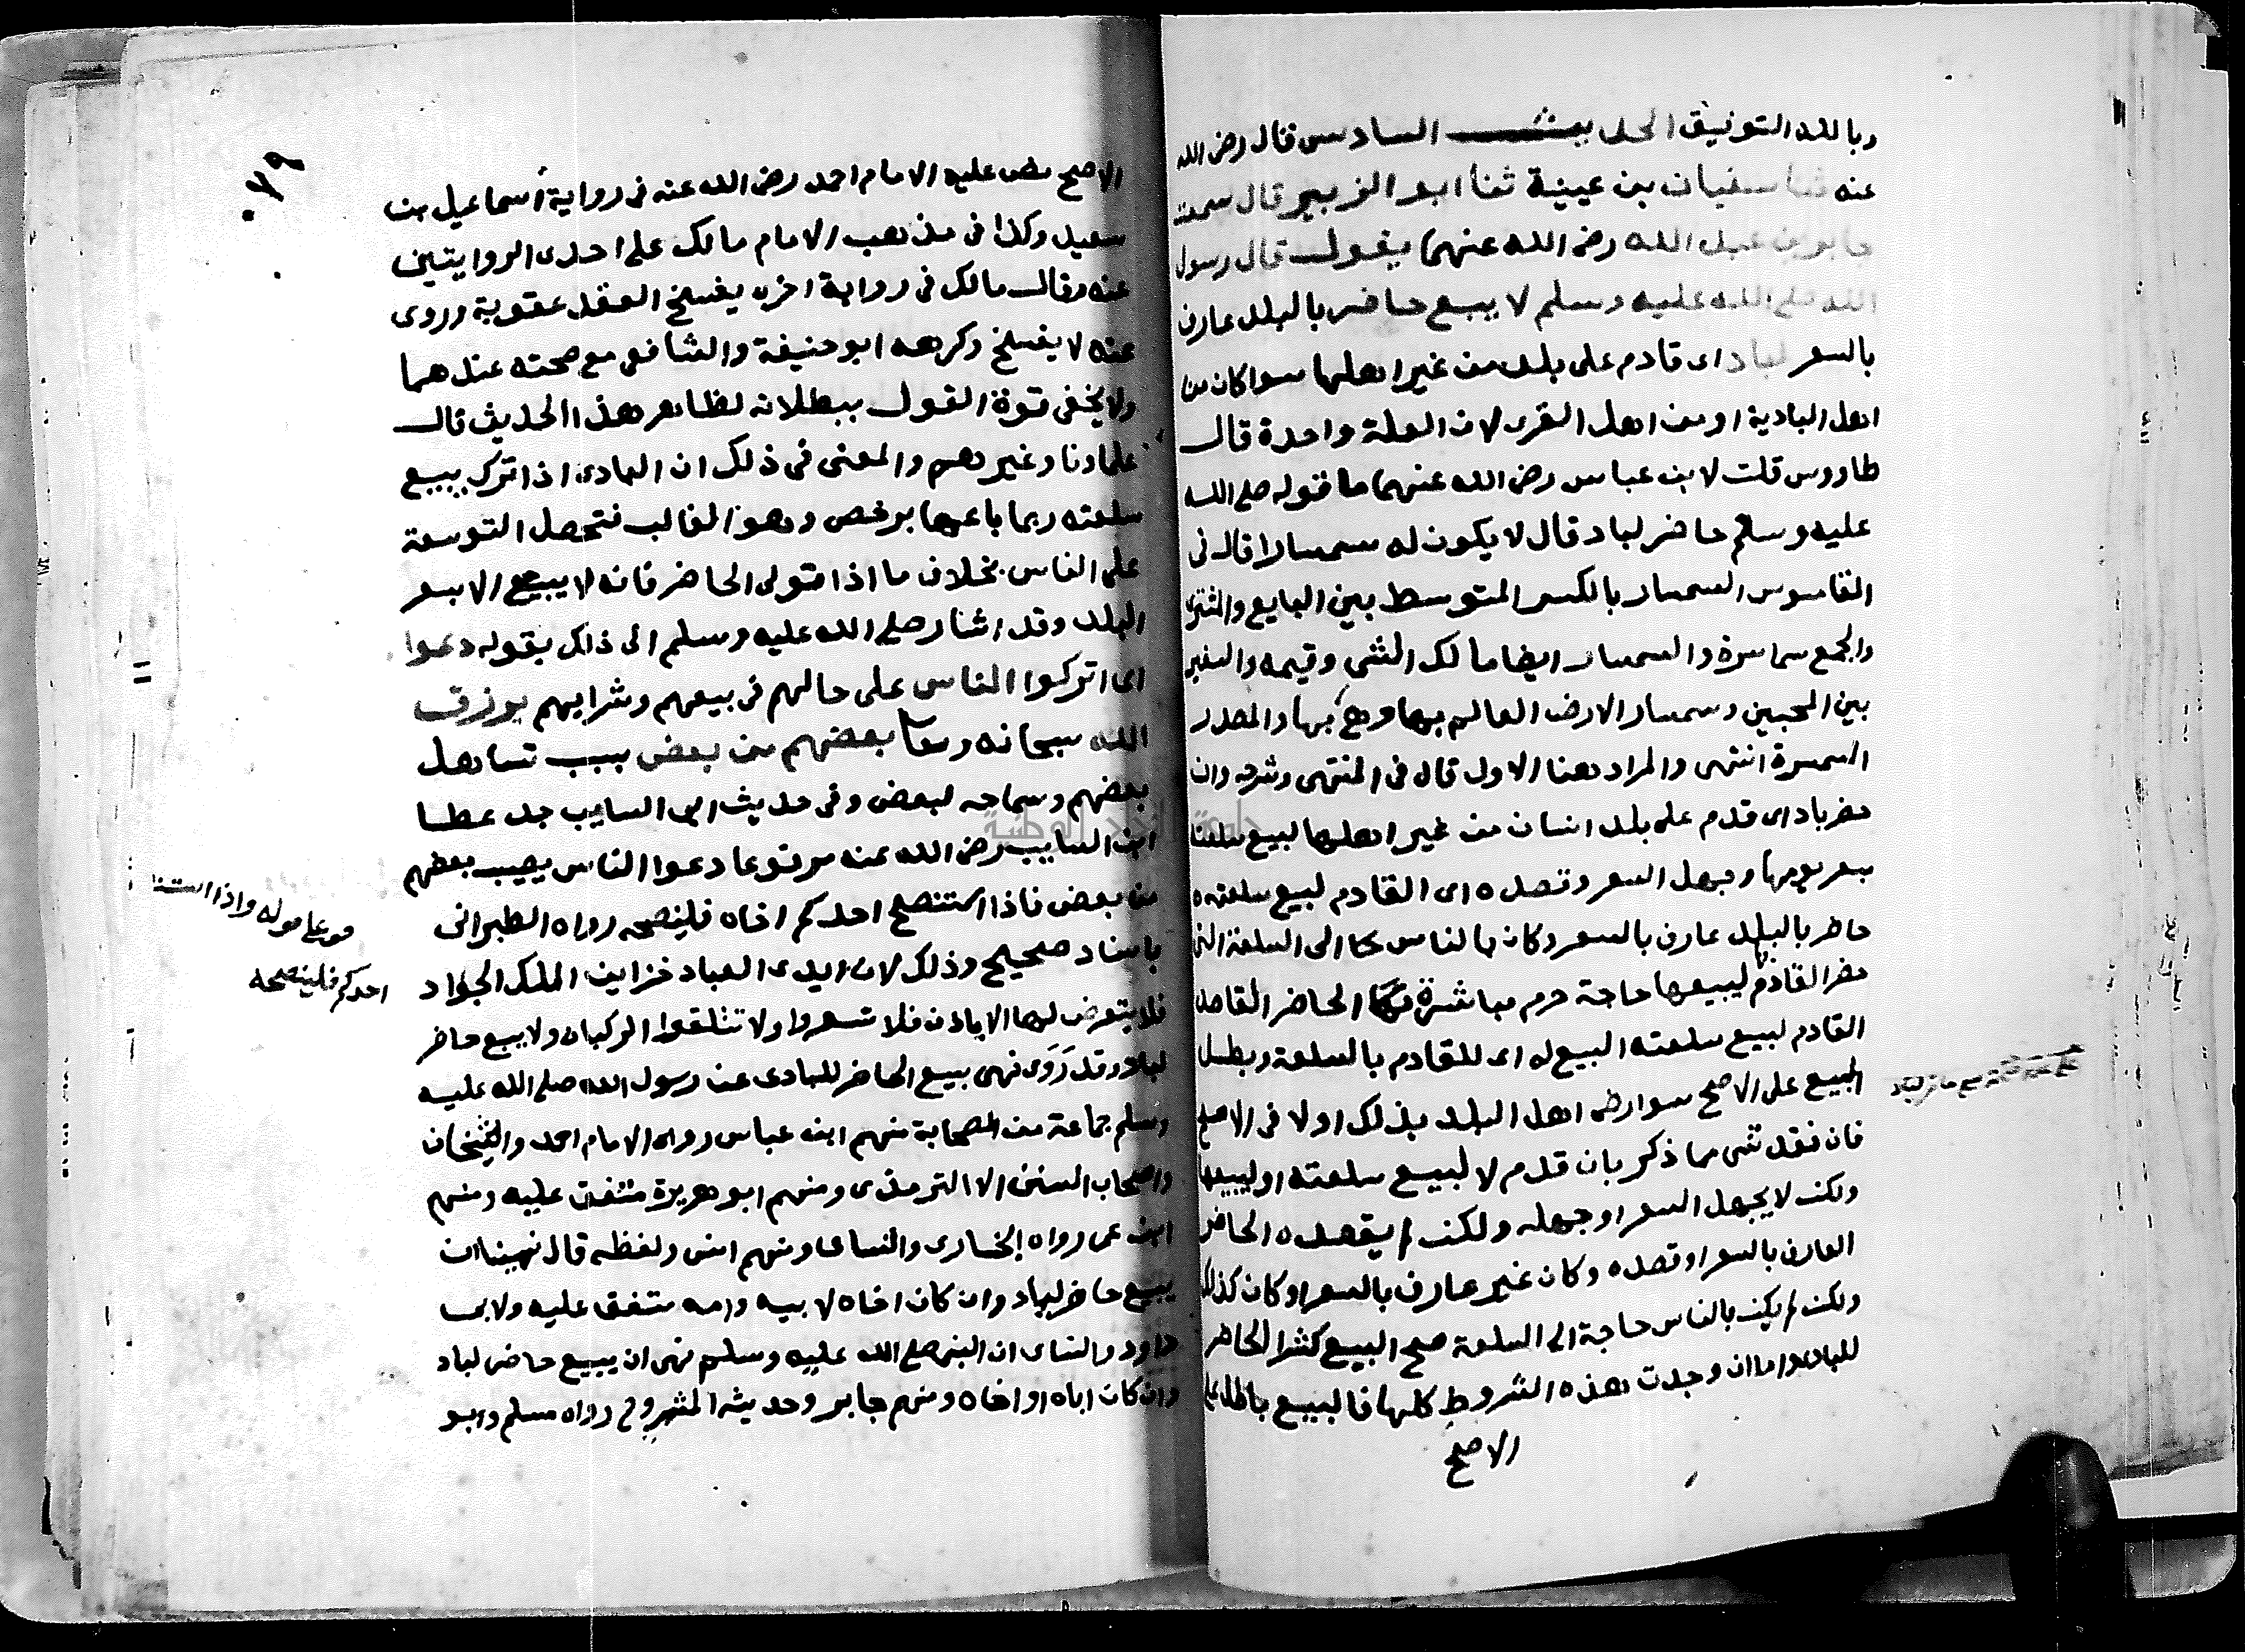 وبالله التوفيق الحديث السادس قال رضي الله
عنه ثنا سفيان بن عيينة ثنا ابو الزبير قال سمعت
جابر بن عبد الله رضي الله عنهما يقول قال رسول
الله صلى الله عليه وسلم لا يبيع حاضر بالبلد عارف
بالسعر لباد اى قادم على بلد من غير اهلها سوا كان من
اهل البادية او من اهل القرى لان العلة واحدة قال
طاووس قلت لابن عباس رضي الله عنهما ما قوله صلى الله
عليه وسلم حاضر لباد قال لا يكون له سمسارا قال في
القاموس السمسار بالكسر المتوسط بين البايع والمشترى
والجمع سماسرة والسمسار ايضا مالك الشي وقيمه والسفير
بين المحبين وسمسار الارض العالم بها وهي بها والمصدر
السمسرة انتهى والمراد هنا الاول قال في المنتهى وشرحه وان
حضر باد اى قدم على بلد انسان من غير اهلها لبيع سلعته
بسعر يومها وجهل السعر وقصده اى القادم لبيع سلعته
حاضر بالبلد عارف بالسعر وكان بالناس الى السلعة التي
حضر القادم ليبيعها حاجة حرم مباشرة الحاضر القاصد
القادم لبيع سلعته البيع له اى للقادم بالسلعة وبطل
البيع على الاصح سوا رضى اهل البلد بذلك او لا في الاصح
فان فقد شي مما ذكر بان قدم لا لبيع سلعته او ليبيعها
ولكن لا يجهل السعر او جهله ولكن لم يقصده الحاضر
العارف بالسعر او قصده وكان غير عارف بالسعر او كان كذلك
ولكن لم يكن بالناس حاجة الى السلعة صح البيع كشرا الحاضر
للبادى واما ان وجدت هذه الشروط كلها فالبيع باطل على
الاصح
٠٢٩
الاصح نص عليه الامام احمد رضي الله عنه في رواية اسماعيل بن
سعيد وكذا في مذهب الامام مالك على احدى الروايتين
عنه وقال مالك في رواية اخرى يفسخ العقد عقوبة وروى
عنه لا يفسخ وكرهه ابو حنيفة والشافعي مع صحته عندهما
ولا يخفى قوة القول ببطلانه لظاهر هذا الحديث قال
علماؤنا وغيرهم والمعنى في ذلك ان البادى اذا ترك يبيع
سلعته ربما باعها برخص وهو الغالب فتحصل التوسعة
على الناس بخلاف ما اذا تولى الحاضر فانه لا يبيع الا بسعر
البلد وقد اشار صلى الله عليه وسلم الى ذلك بقوله دعوا
اى اتركوا الناس على حالهم في بيعهم وشرايهم يرزق
الله سبحانه وتعا بعضهم من بعض بسبب تساهل
بعضهم وسماحه لبعض وفي حديث ابي السايب جد عطا
ابن السايب رضي الله عنه مرفوعا دعوا الناس يصيب بعضهم
من بعض فاذا استنصح احدكم اخاه فلينصحه رواه الطبراني
باسناد صحيح وذلك لان ايدى العباد خزاين الملك الجواد
فلا يتعرض لها الا باذن فلا تسعروا ولا تتلقوا الركبان ولا يبيع حاضر
لباد وقد روى نهى بيع الحاضر للبادى عن رسول الله صلى الله عليه
وسلم جماعة من الصحابة منهم ابن عباس رواه الامام احمد والشيخان
واصحاب السنن الا الترمذى ومنهم ابو هريرة متفق عليه ومنهم
ابن عمر رواه البخارى والنساى ومنهم انس ولفظه قال نهينا ان
يبيع حاضر لباد وان كان اخاه لابيه وامه متفق عليه ولابى
داود والنساى ان النبي صلى الله عليه وسلم نهى ان يبيع حاضر لباد
وان كان اباه او اخاه ومنهم جابر وحديثه المشروح رواه مسلم وابو
قوله واذا
احدكم فلينصحه